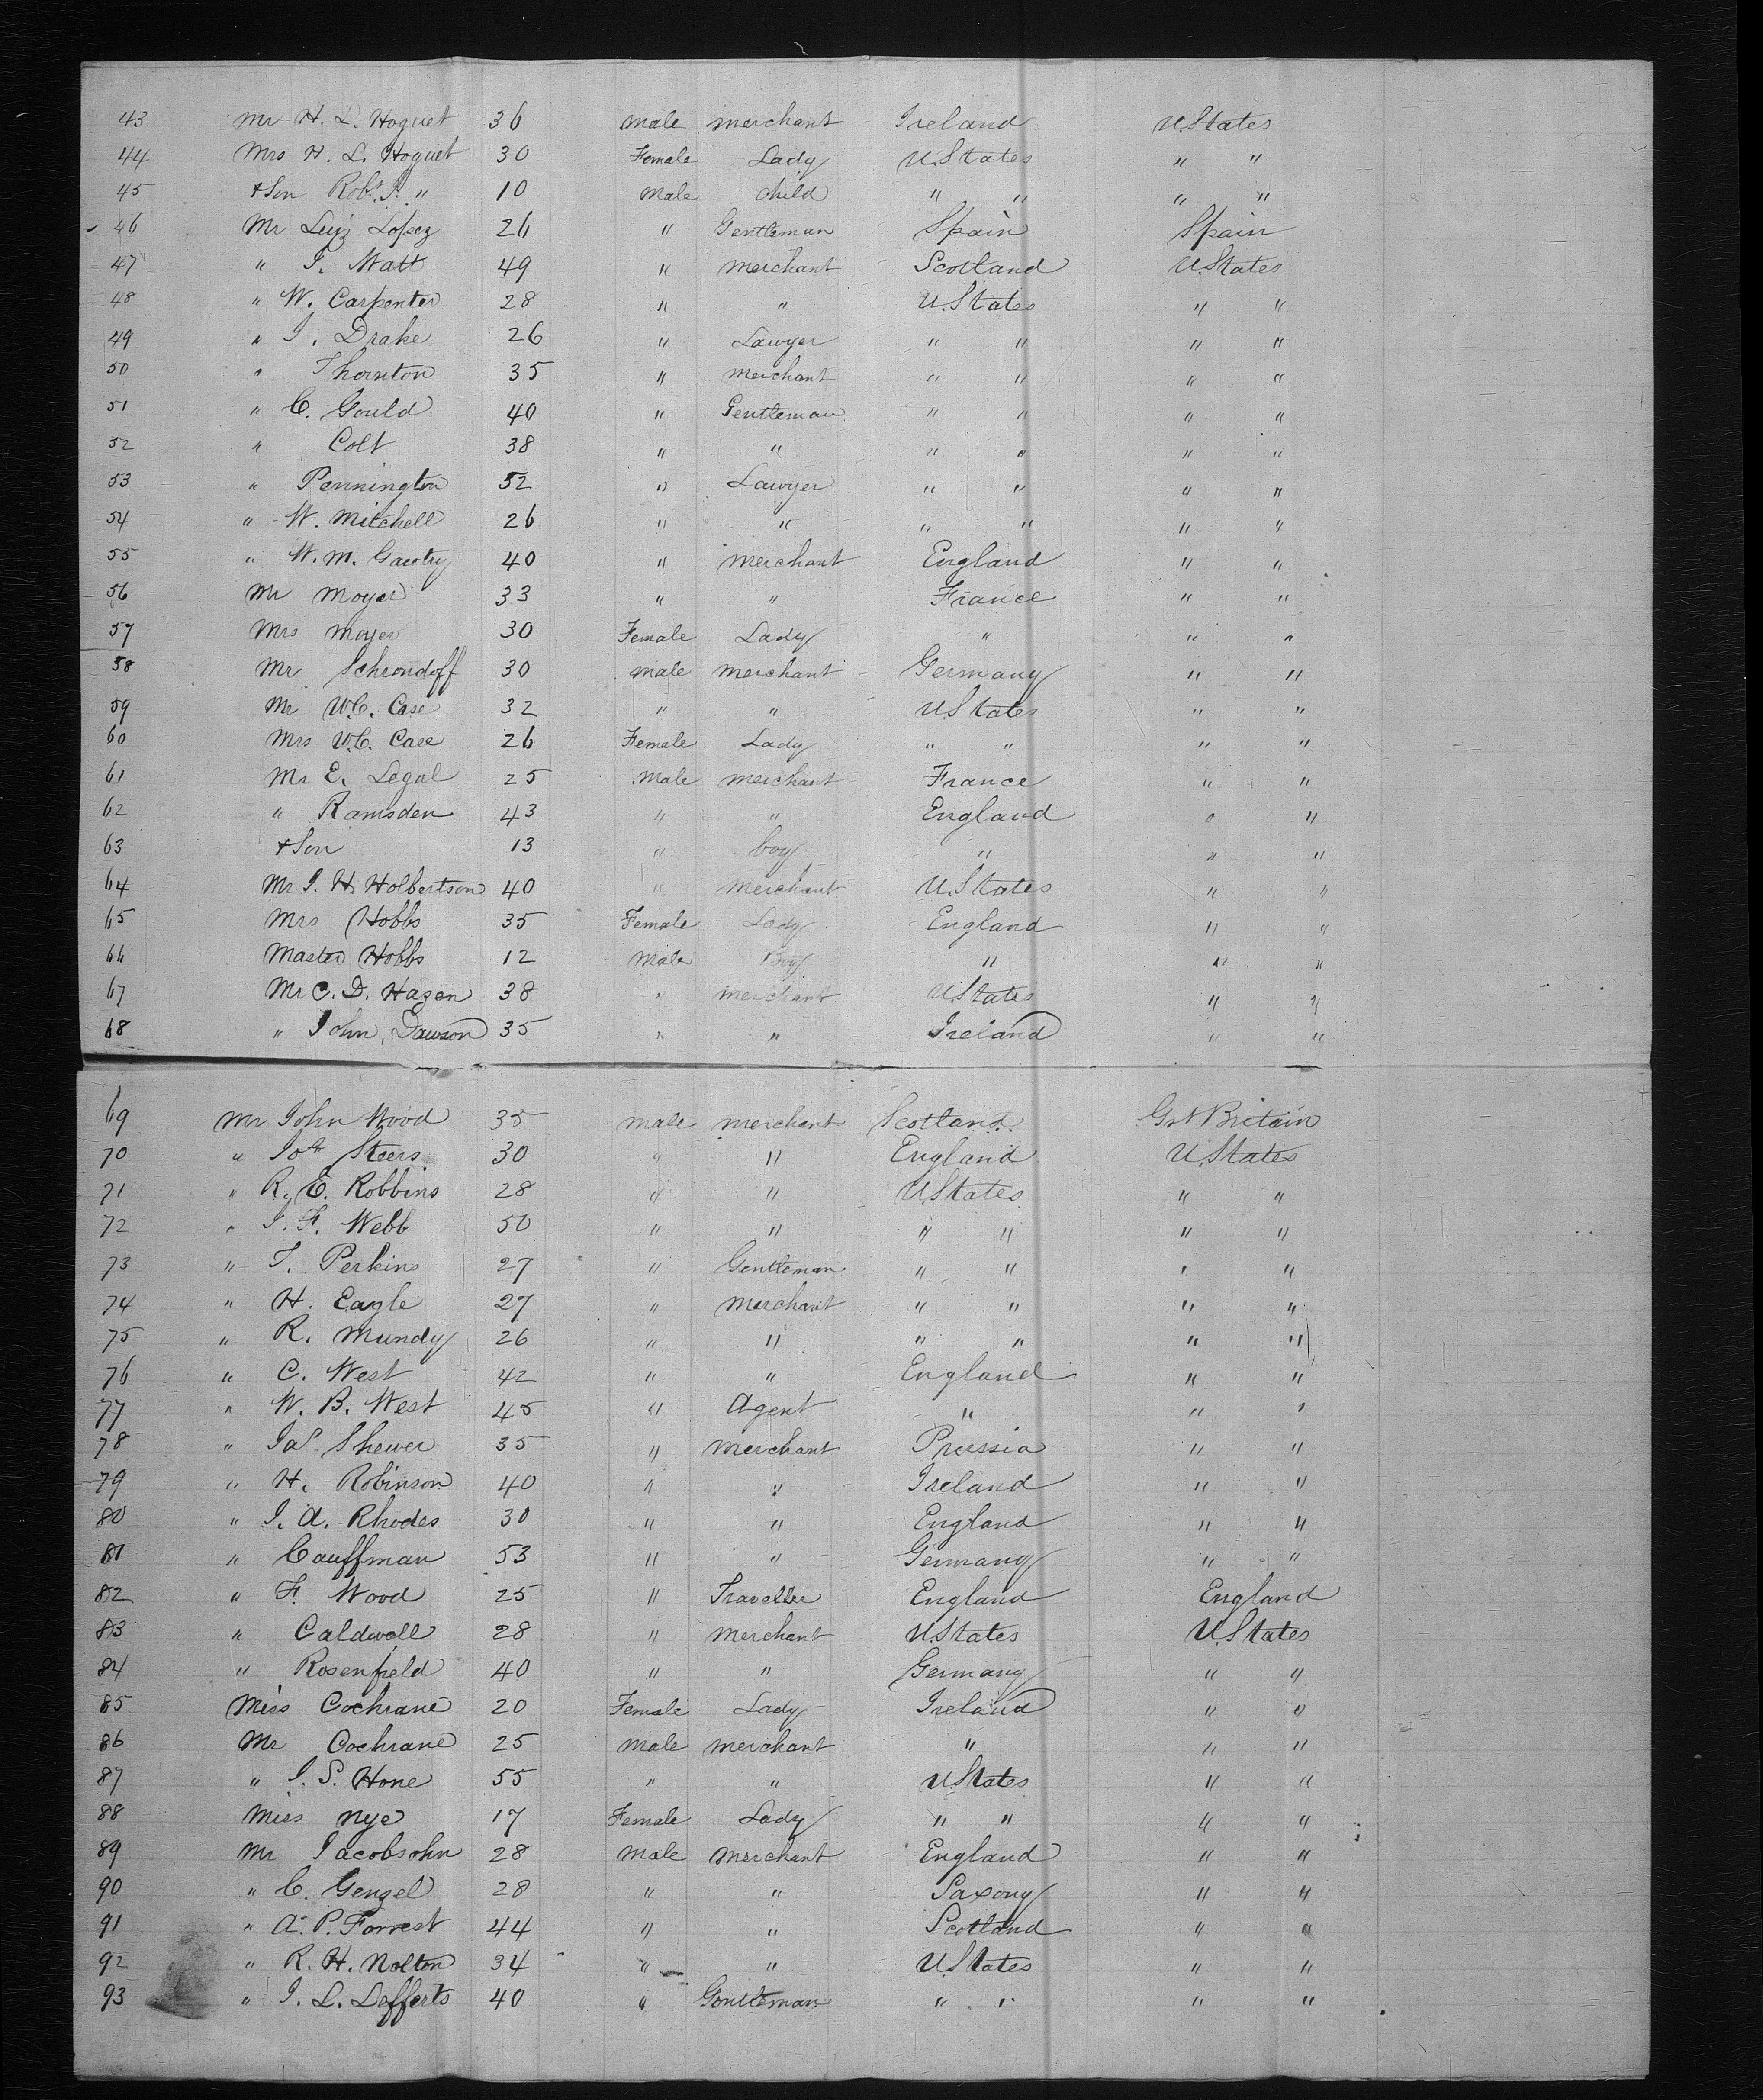 43 Mr H. L. Hoguet 36 male merchant Ireland U.States
44 Mrs H. L. Hoguet 30 Female Lady U.States " "
45 + Son Robt. J. " 10 male child " " " "
46 Mr Luiz Lopez 26 " Gentleman Spain Spain
47 " J. Watt 49 " merchant Scotland U.States
48 " W. Carpenter 28 " " U.States " "
49 " J. Drake 26 " Lawyer " " " "
50 " Thornton 35 " merchant " " " "
51 " C. Gould 40 " Gentleman " " " "
52 " Colt 38 " " " " " "
53 " Pennington 52 " Lawyer " " " "
54 " W. Mitchell 26 " " " " " "
55 " W. M. 40 " merchant England " "
56 Mr Moyer 33 " " France " "
57 Mrs Moyer 30 Female Lady " " "
58 Mr Schrondoff 30 male merchant Germany " "
59 Mr W.C. Case 32 " " U.States " "
60 Mrs W.C. Case 26 Female Lady " " " "
61 Mr E. Legal 25 male merchant France " "
62 " Ramsden 43 " " England " "
63 + Son 13 " boy " " "
64 Mr J. H. Holbertson 40 " merchant U.States " "
65 Mrs Hobbs 35 Female Lady England " "
66 Master Hobbs 12 male Boy " " "
67 Mr C. D. Hazen 38 " merchant U.States " "
68 " John Dawson 35 " " Ireland " "
69 Mr John Wood 35 male merchant Scotland Gt Britain
70 " Jos Steers 30 " " England U.States
71 " R. E. Robbins 28 " " U.States " "
72 " J. F. Webb 50 " " " " " "
73 " T. Perkins 27 " Gentleman " " " "
74 " H. Eagle 27 " merchant " " " "
75 " R. Mundy 26 " " " " " "
76 " C. West 42 " " England " "
77 " W. B. West 45 " Agent " " "
78 " Jas Shewer 35 " merchant Prussia " "
79 " H. Robinson 40 " " Ireland " "
80 " J. A. Rhodes 30 " " England " "
81 " Cauffman 53 " " Germany " "
82 " F. Wood 25 " Traveller England England
83 " Caldwell 28 " merchant U.States U.States
84 " Rosenfield 40 " " Germany " "
85 Miss Cochrane 20 Female Lady Ireland " "
86 Mr Cochrane 25 male merchant " " "
87 " J. S. Hone 55 " " U.States " "
88 Miss Nye 17 Female Lady " " " "
89 Mr Jacobsohn 28 male merchant England " "
90 " C. Genzel 28 " " Saxony " "
91 " A. P. Forrest 44 " " Scotland " "
92 " R. H. Nolton 34 " " U.States " "
93 " J. L. Lefferts 40 " Gentleman " " " "